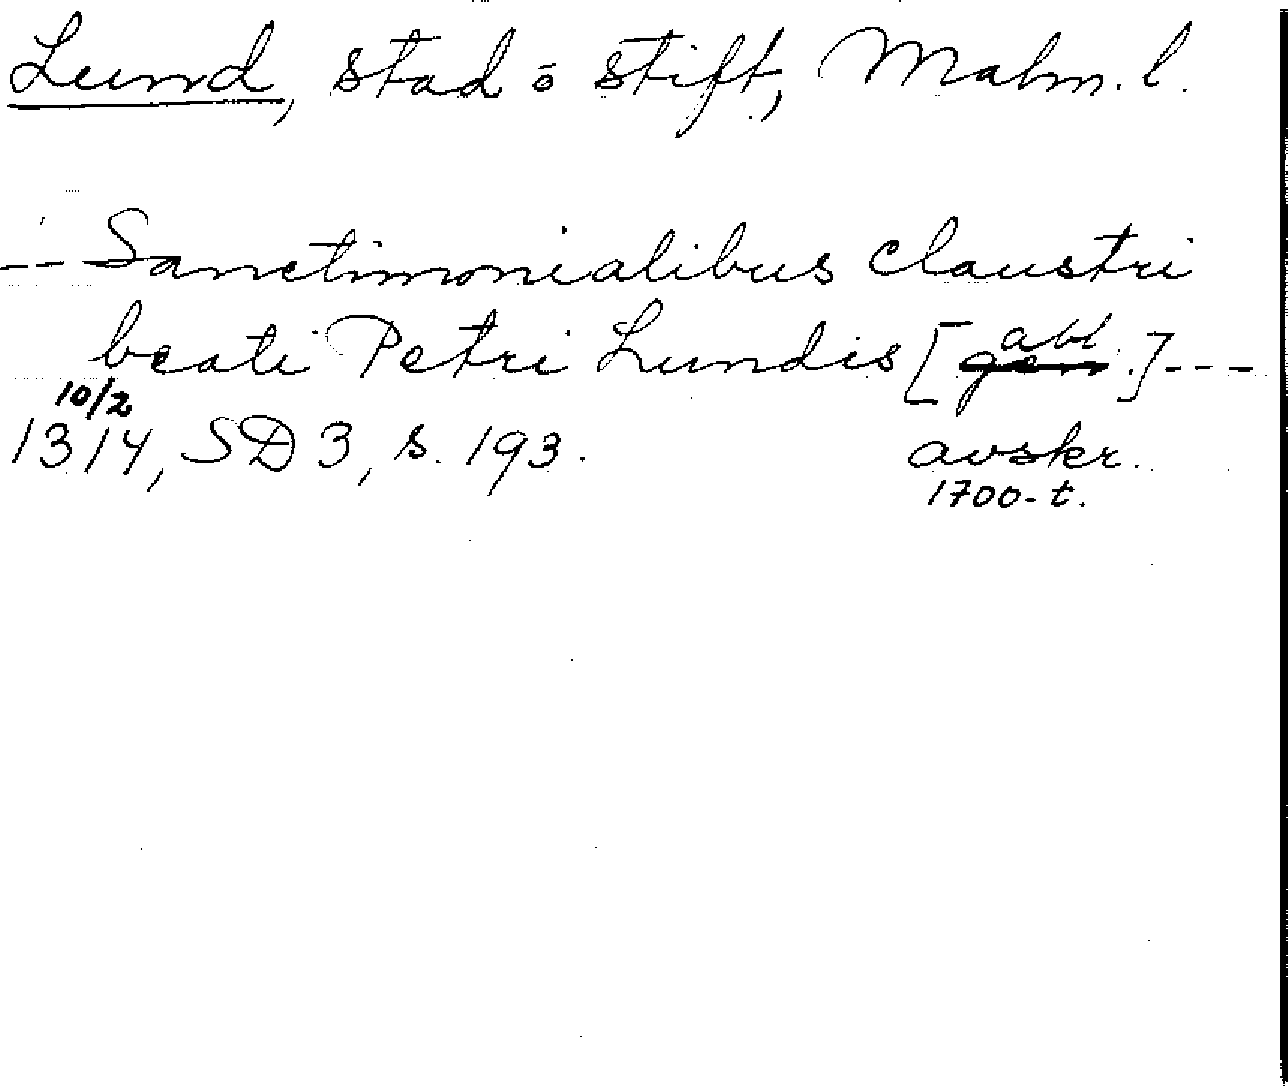 Lund, stad o stift, Malm. l.
--- Sanctimonialibus claustri
beati Petri Lundis [abl.]---
10/2
1314, SD 3, s. 193. avskr.
1700-t.